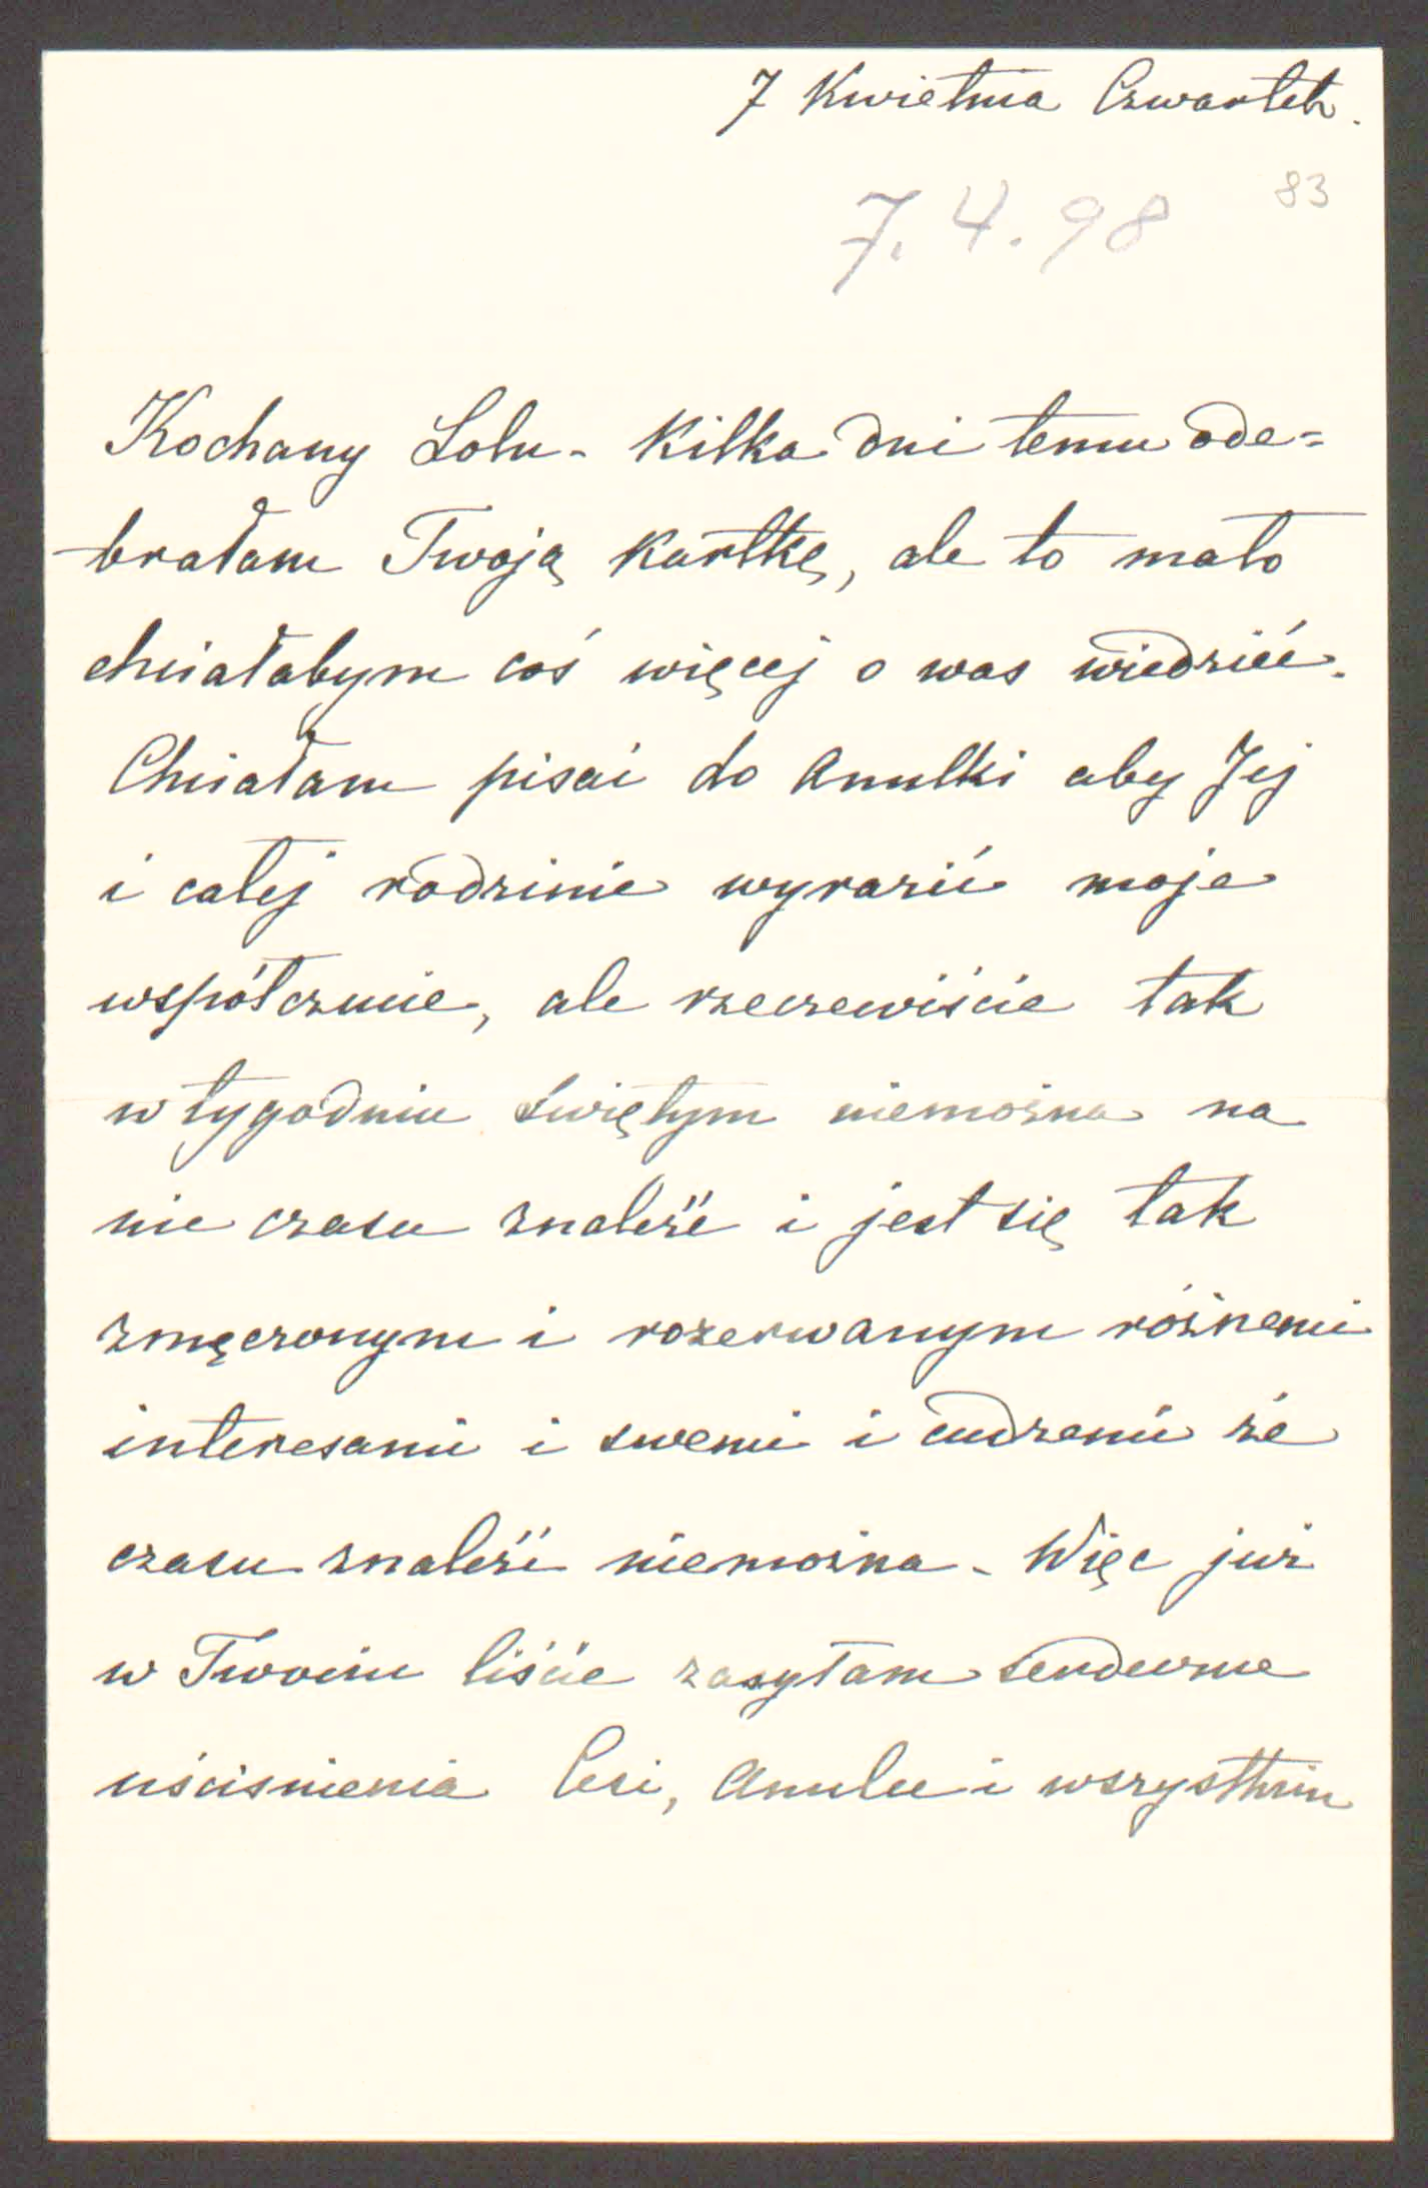 7 Kwietnia Czwartek.
83
7.4.98
Kochany Lolu - Kilka dni temu ode=
brałam Twoją kartkę, ale to mało
chciałabym coś więcej o was wiedzieć.
Chciałam pisać do Anulki aby Jej
i całej rodzinie wyrazić moje
współczucie, ale rzeczewiście tak
w tygodniu świętym niemożna na
nic czasu znaleźć i jest się tak
zmęczonym i rozerwanym różnemi
interesami i swemi i cudzemi że
czasu znaleźć niemożna - Więc już
w Twoim liście zasyłam serdeczne
uściśnienia Cesi, Anulce i wszystkim